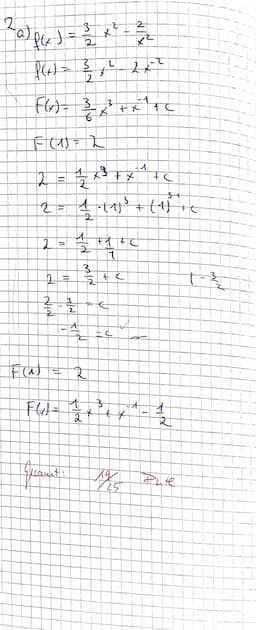 2a) f(x) = 3/2 x² - 2/x²
f(x) = 3/2 x² - 2x⁻²
F(x) = 3/6 x³ + x⁻¹ + c
F(1) = 2
2 = 1/2 x³ + x⁻¹ + c
2 = 1/2 · (1)³ + (1)⁻¹ + c
2 = 1/2 + 1/1 + c
2 = 3/2 + c | - 3/2
2/2 - 3/2 = c
- 1/2 = c
F(1) = 2
F(x) = 1/2 x³ + x⁻¹ - 1/2
19/25